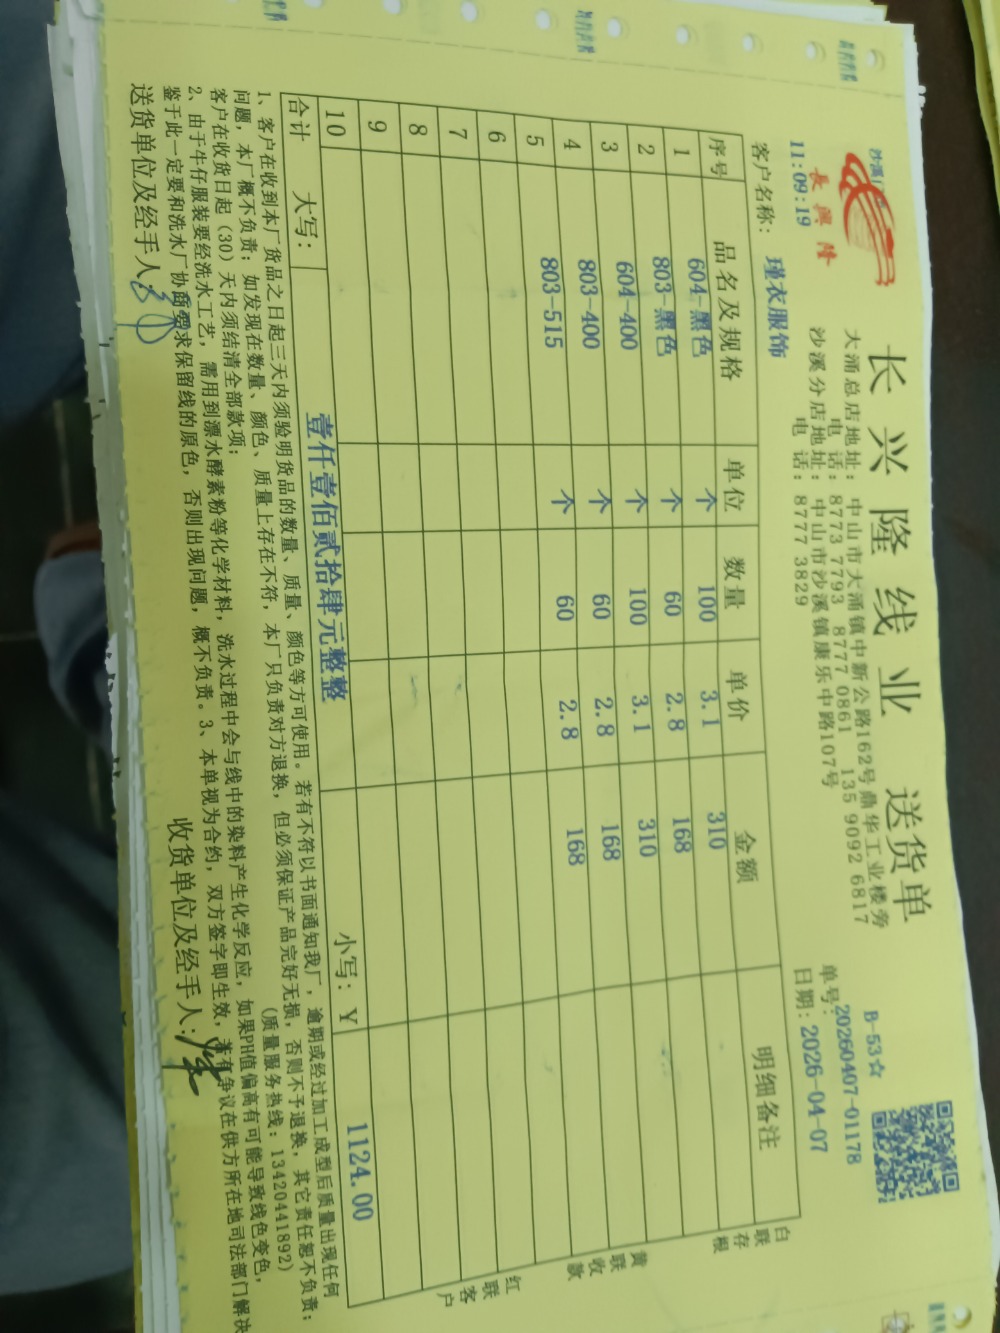 长兴隆线业 送货单
長興隆
B-53☆
11:09:19
大涌总店地址：中山市大涌镇中新公路162号鼎华工业楼旁
电话：8773 7793 8777 0861 135 9092 6817
沙溪分店地址：中山市沙溪镇康乐中路107号
电话：8777 3829
单号：20260407-01178
日期：2026-04-07
客户名称：瑾衣服饰
序号 品名及规格 单位 数量 单价 金额 明细备注
1 604-黑色 个 100 3.1 310
2 803-黑色 个 60 2.8 168
3 604-400 个 100 3.1 310
4 803-400 个 60 2.8 168
5 803-515 个 60 2.8 168
6
7
8
9
10
合计 大写：壹仟壹佰贰拾肆元整整 小写：Y 1124.00
白联存根
黄联收款
红联客户
1、客户在收到本厂货品之日起三天内须验明货品的数量、质量、颜色等方可使用。若有不符以书面通知我厂，逾期或经过加工成型后质量出现任何
问题，本厂概不负责；如发现在数量、颜色、质量上存在不符，本厂只负责对方退换，但必须保证产品完好无损，否则不予退换，其它责任恕不负责；
客户在收货日起（30）天内须结清全部款项； (质量服务热线：13420441892)
2、由于牛仔服装要经洗水工艺，需用到漂水酵素粉等化学材料，洗水过程中会与线中的染料产生化学反应，如果PH值偏高有可能导致线色变色，
鉴于此一定要和洗水厂协商要求保留线的原色，否则出现问题，概不负责。3、本单视为合约，双方签字即生效，若有争议在供方所在地司法部门解决
送货单位及经手人： 收货单位及经手人：